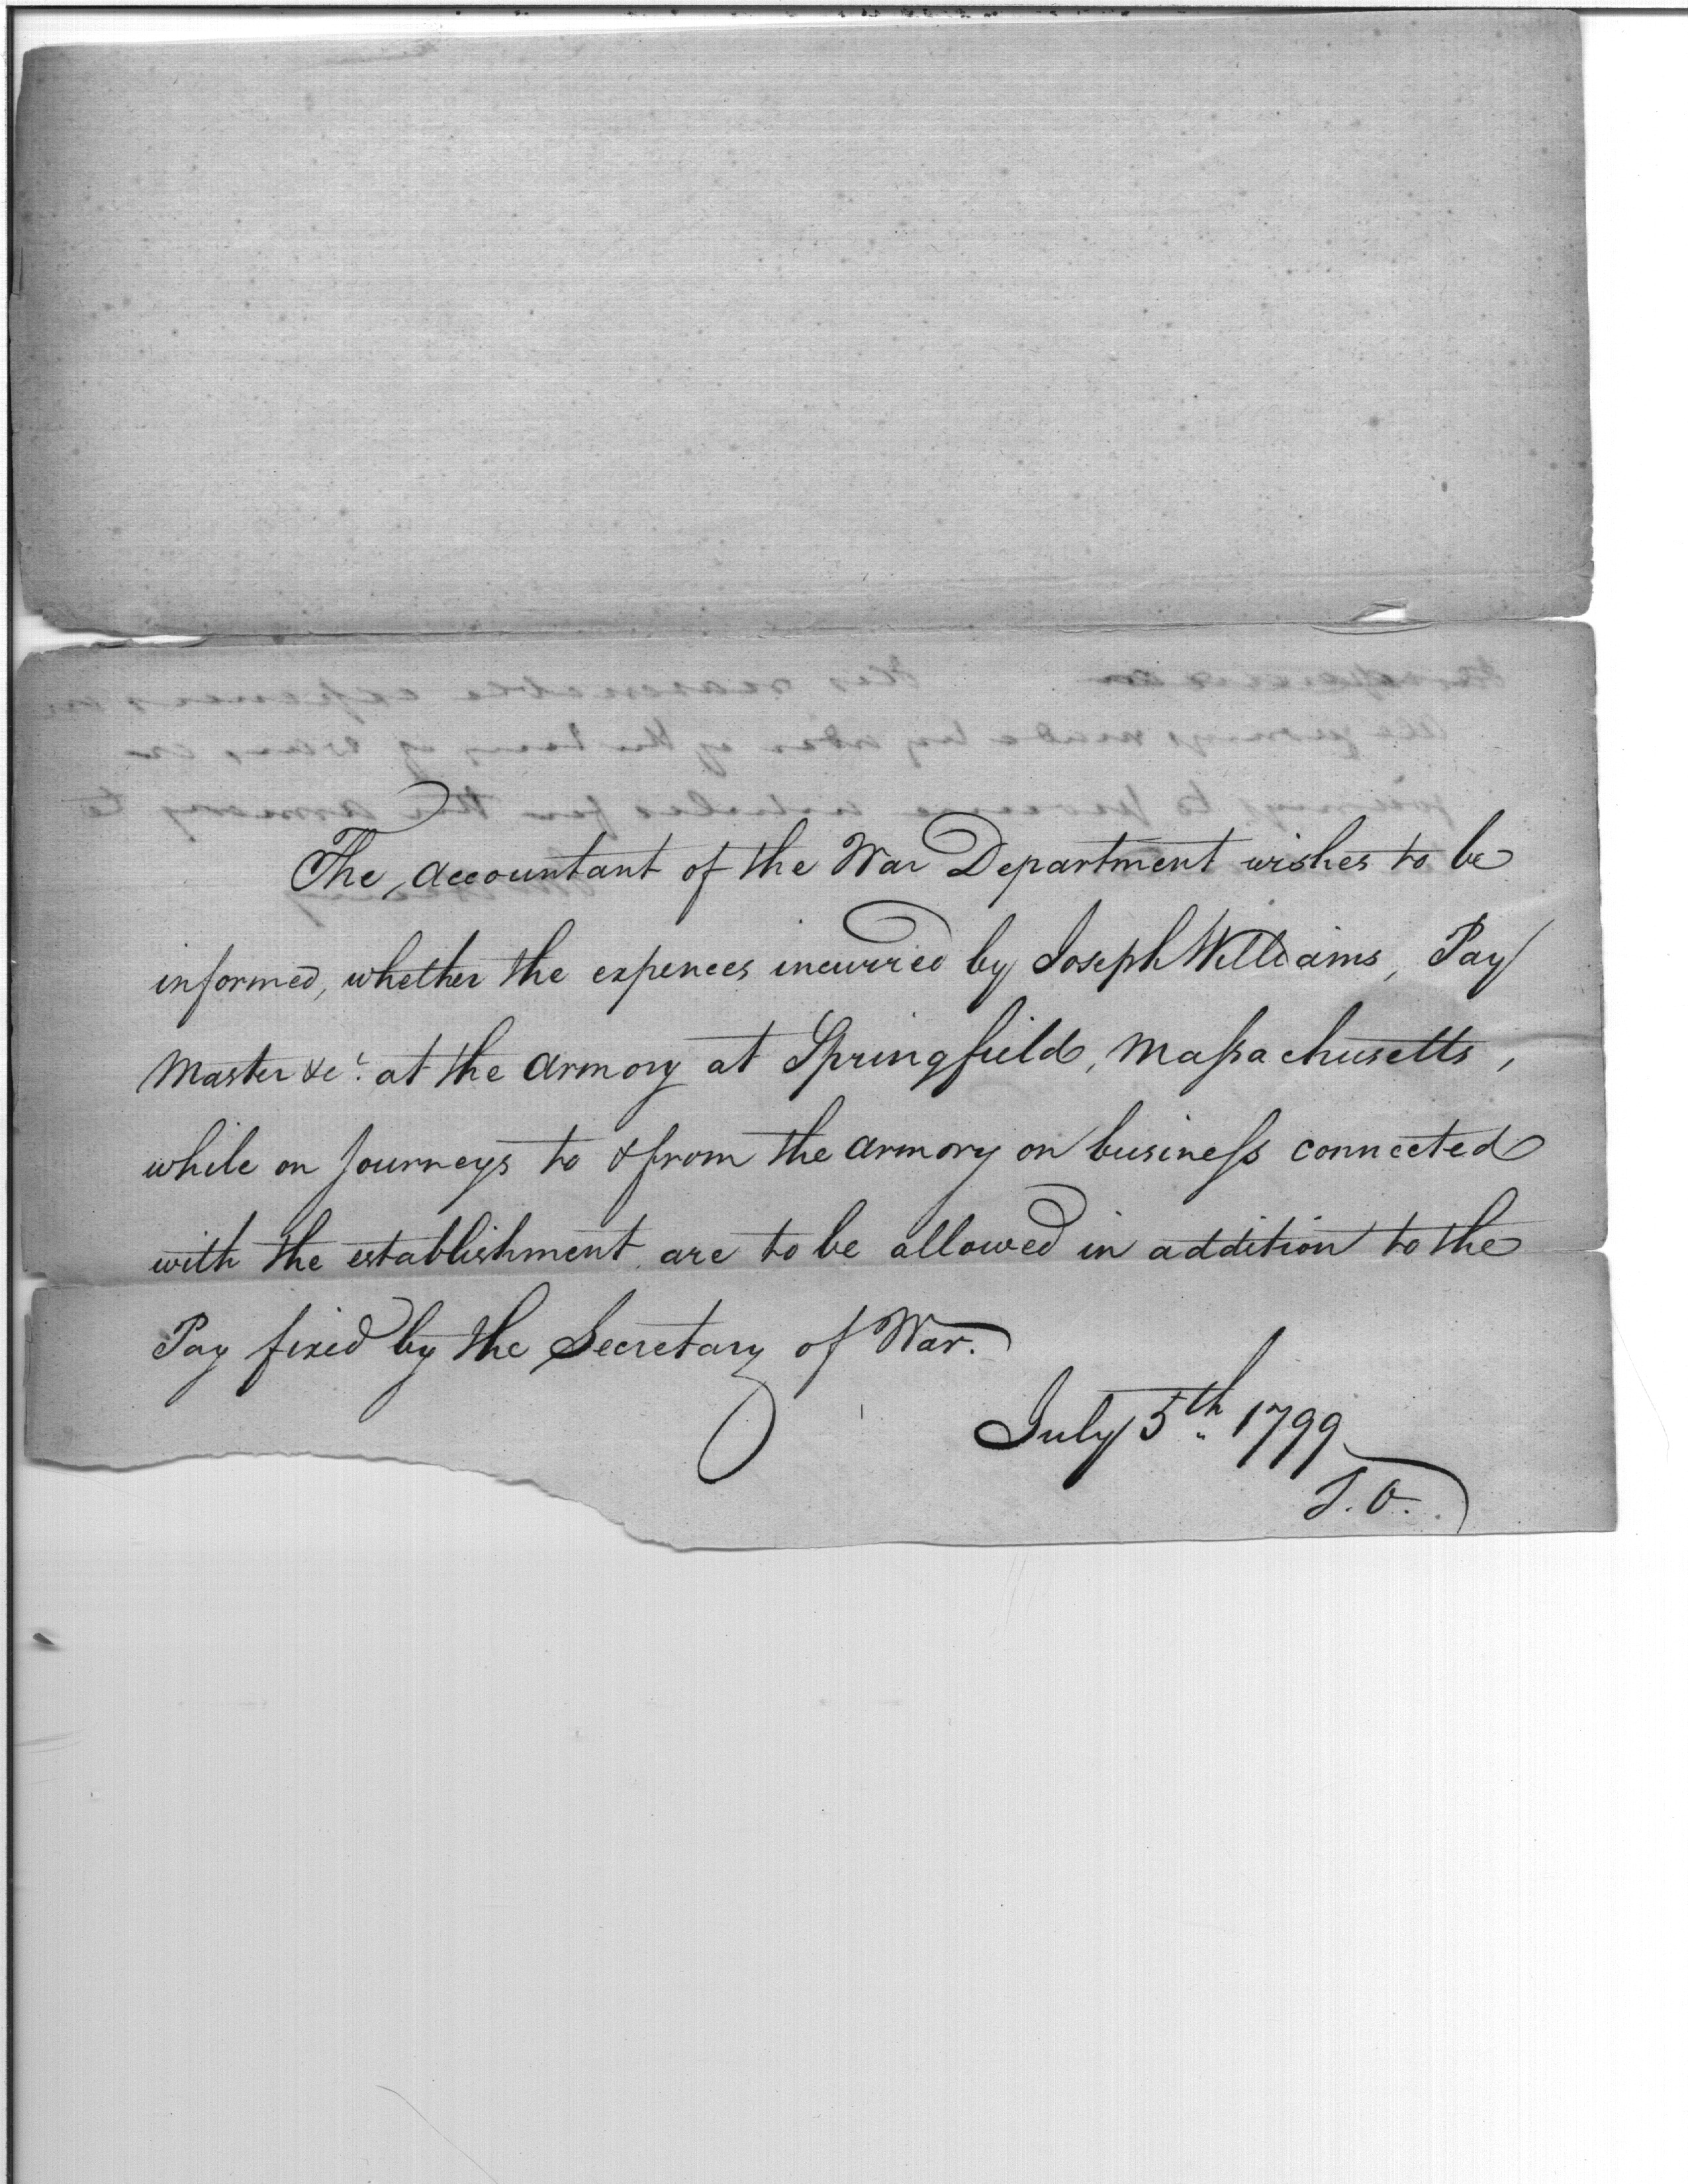 The Accountant of the War Department wishes to be
informed, whether the expences incurred by Joseph Williams, Pay
Master &c. at the Armory at Springfield, Massachusetts,
while on Journeys to & from the Armory on business connected
with the establishment are to be allowed in addition to the
Pay fixed by the Secretary of War.
July 5th 1799